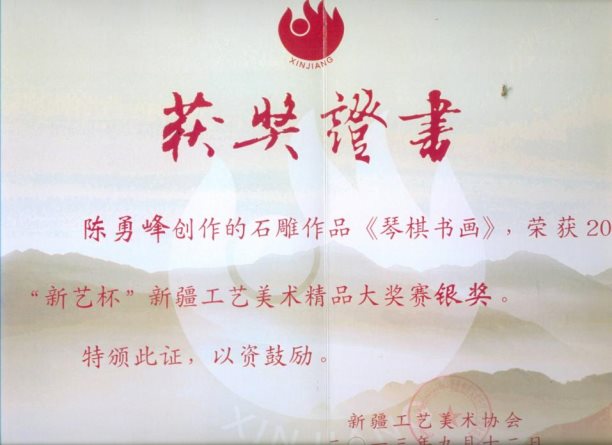 XINJIANG
获奖證書
陈勇峰创作的石雕作品《琴棋书画》，荣获20
“新艺杯”新疆工艺美术精品大奖赛银奖。
特颁此证，以资鼓励。
新疆工艺美术协会
二〇一三年九月十
XINJIANG